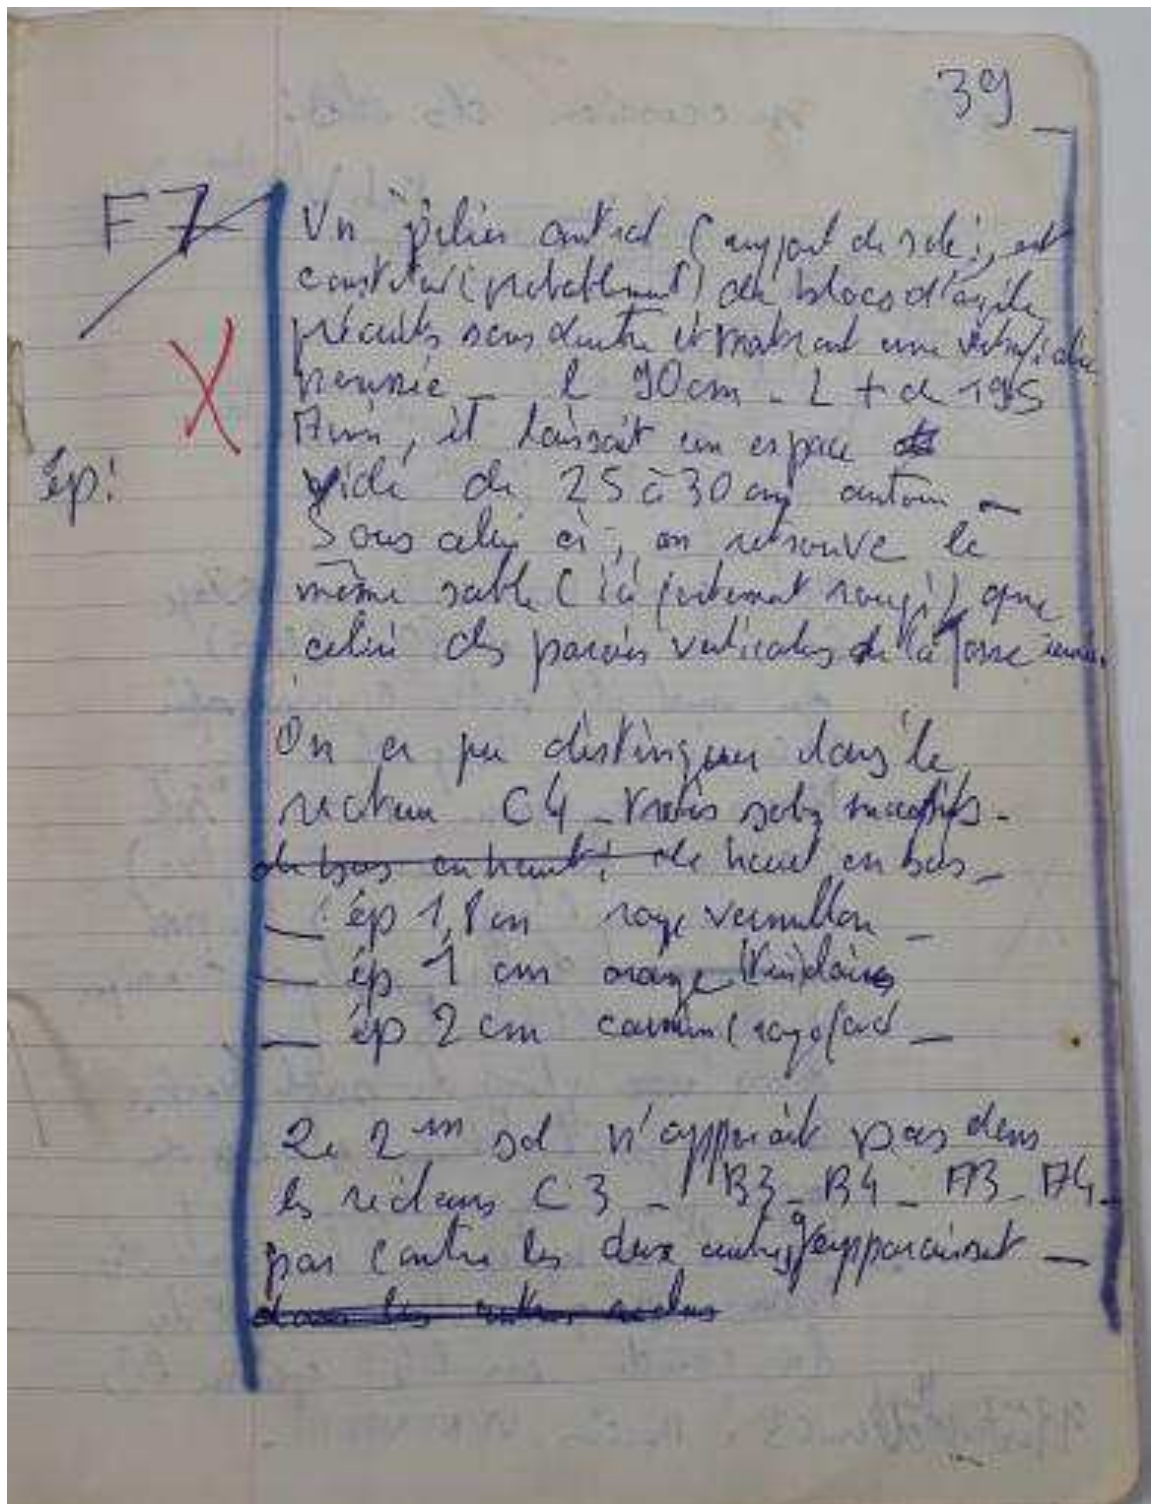 39_
F7
Un pilier central (support de sole), est
constitué (probablement) de blocs d'argile
précuits sans doute et montrant une vitrification
poussée _ l 90cm _ L + de 195
Ainsi, il laissait un espace
ép:
vide de 25 à 30 cm autour _
Sous celui ci, on retrouve le
même sable (là fortement rougi) que
celui des parois verticales de la fosse
On a pu distinguer dans le
secteur C4 _ trois sols successifs _
de bas en haut: de haut en bas _
_ ép 1,8 cm rouge vermillon _
_ ép 1 cm orange
_ ép 2 cm carmin (rouge foncé _
Le 2em sol n'apparait pas dans
les secteurs C3 _ B3 _ B4 _ A3 _ A4 _
par contre les deux autres apparaissent _
dans les autres secteurs